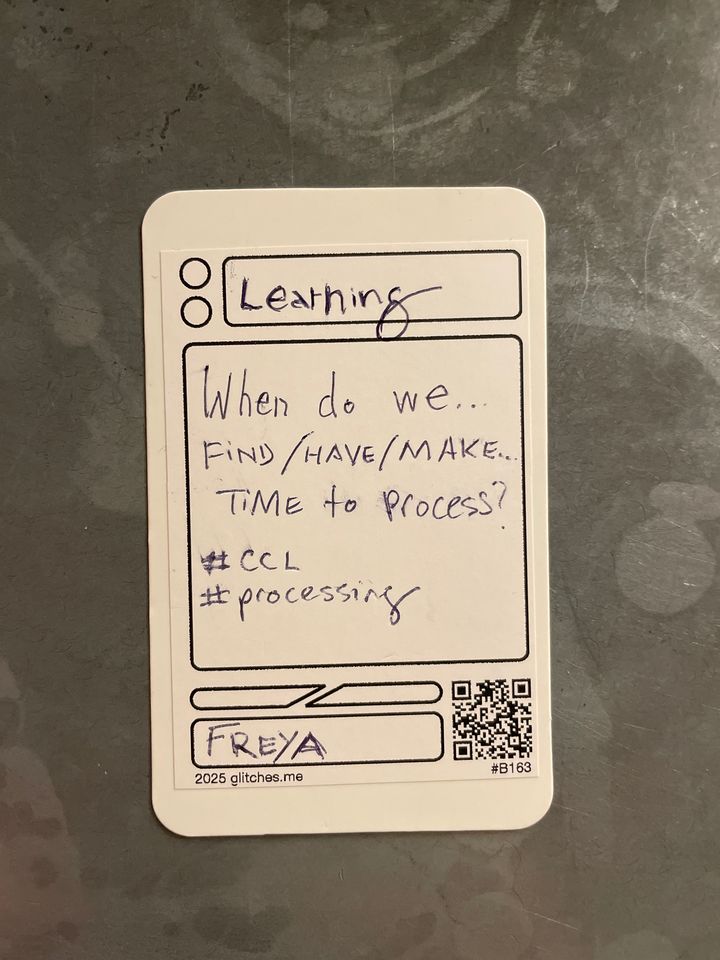 Learning
When do we...
FiND/HAVE/MAKE...
TiME to process?
#CCL
#processing
FREYA
2025 glitches.me
#B163